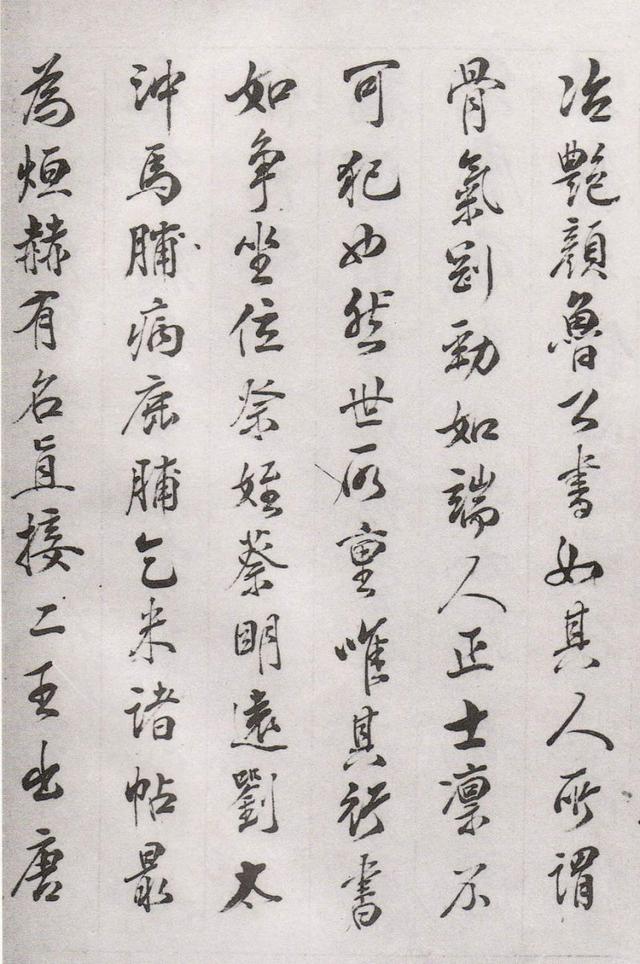 冶艷顏魯公書如其人所謂
骨氣剛勁如端人正士凜不
可犯也然世所重唯其行書
如爭坐位祭姪蔡明遠劉太
沖馬脯病鹿脯乞米諸帖最
為烜赫有名直接二王出唐